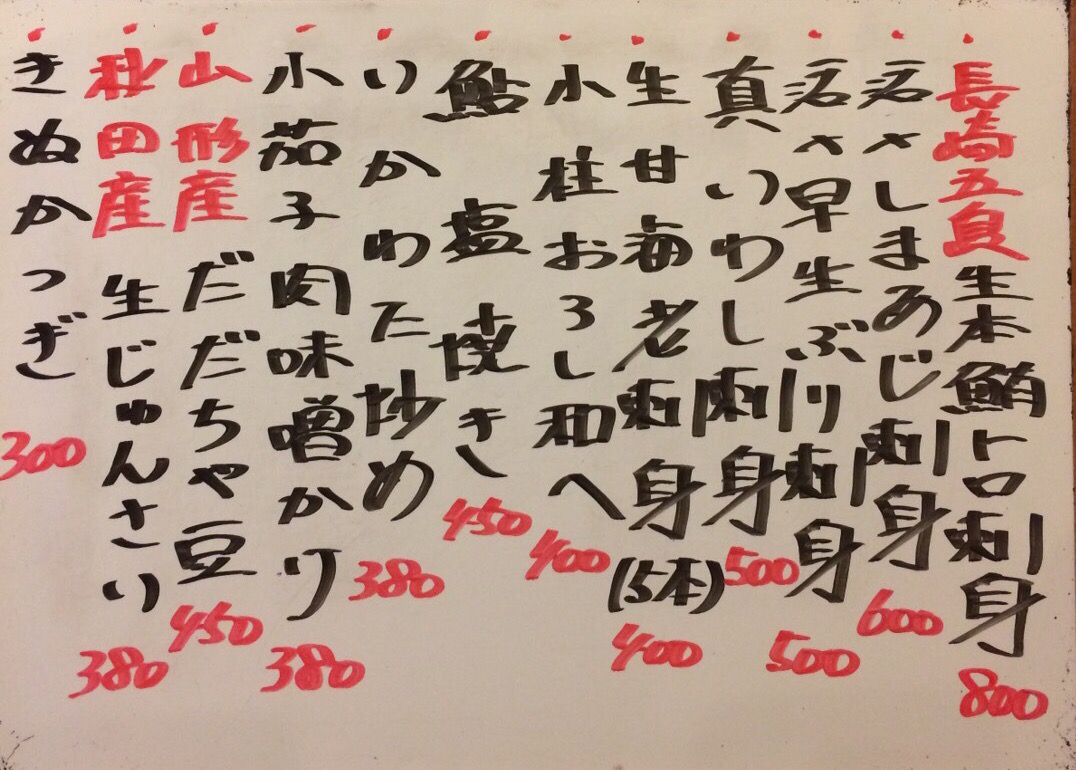 長崎五島生本鮪トロ刺身 800
活〆しまあじ刺身 600
活〆早生ぶり刺身 500
真いわし刺身 500
生甘海老刺身(5本) 400
小柱おろし和へ 400
鮎塩焼き 450
いかわた炒め 380
小茄子肉味噌かり 380
山形産だだちゃ豆 450
秋田産生じゅんさい 380
きぬかつぎ 300